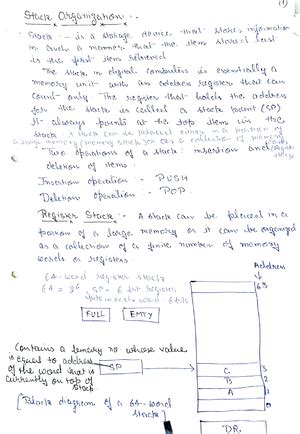 (1)
Stack Organization :-
Stack :- is a storage device that stores information
in such a manner that the item stored last
is the first item retrieved
The stack in digital computers is essentially a
memory unit with an address register that can
count only. The register that holds the address
for the stack is called a stack point (SP)
It always points at the top item in the
stack. A stack can be placed either in a portion of
a large memory
Two operations of a stack: insertion and
deletion of items.
Insertion operation :- PUSH
Deletion operation :- POP
Register Stack :- A stack can be placed in a
portion of a large memory or it can be organized
as a collection of a finite number of memory
words or registers.
64-word register stack
64 = 2^6, SP = 6 bit register
Address
63
FULL
EMTY
Contains a binary no whose value
is equal to address
of the word that is
currently on top of
stack
SP
C 3
B 2
A 1
0
[Block diagram of a 64-word
stack]
DR.